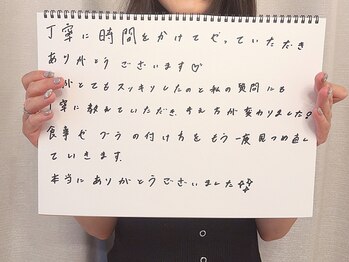 丁寧に時間をかけてやっていただき
ありがとうございます♡
がとてもスッキリしたのと私の質問にも
丁寧に教えていただき、考え方が変わりました!
食事やブラの付け方をもう一度見つめ直し
ていきます。
本当にありがとうございました